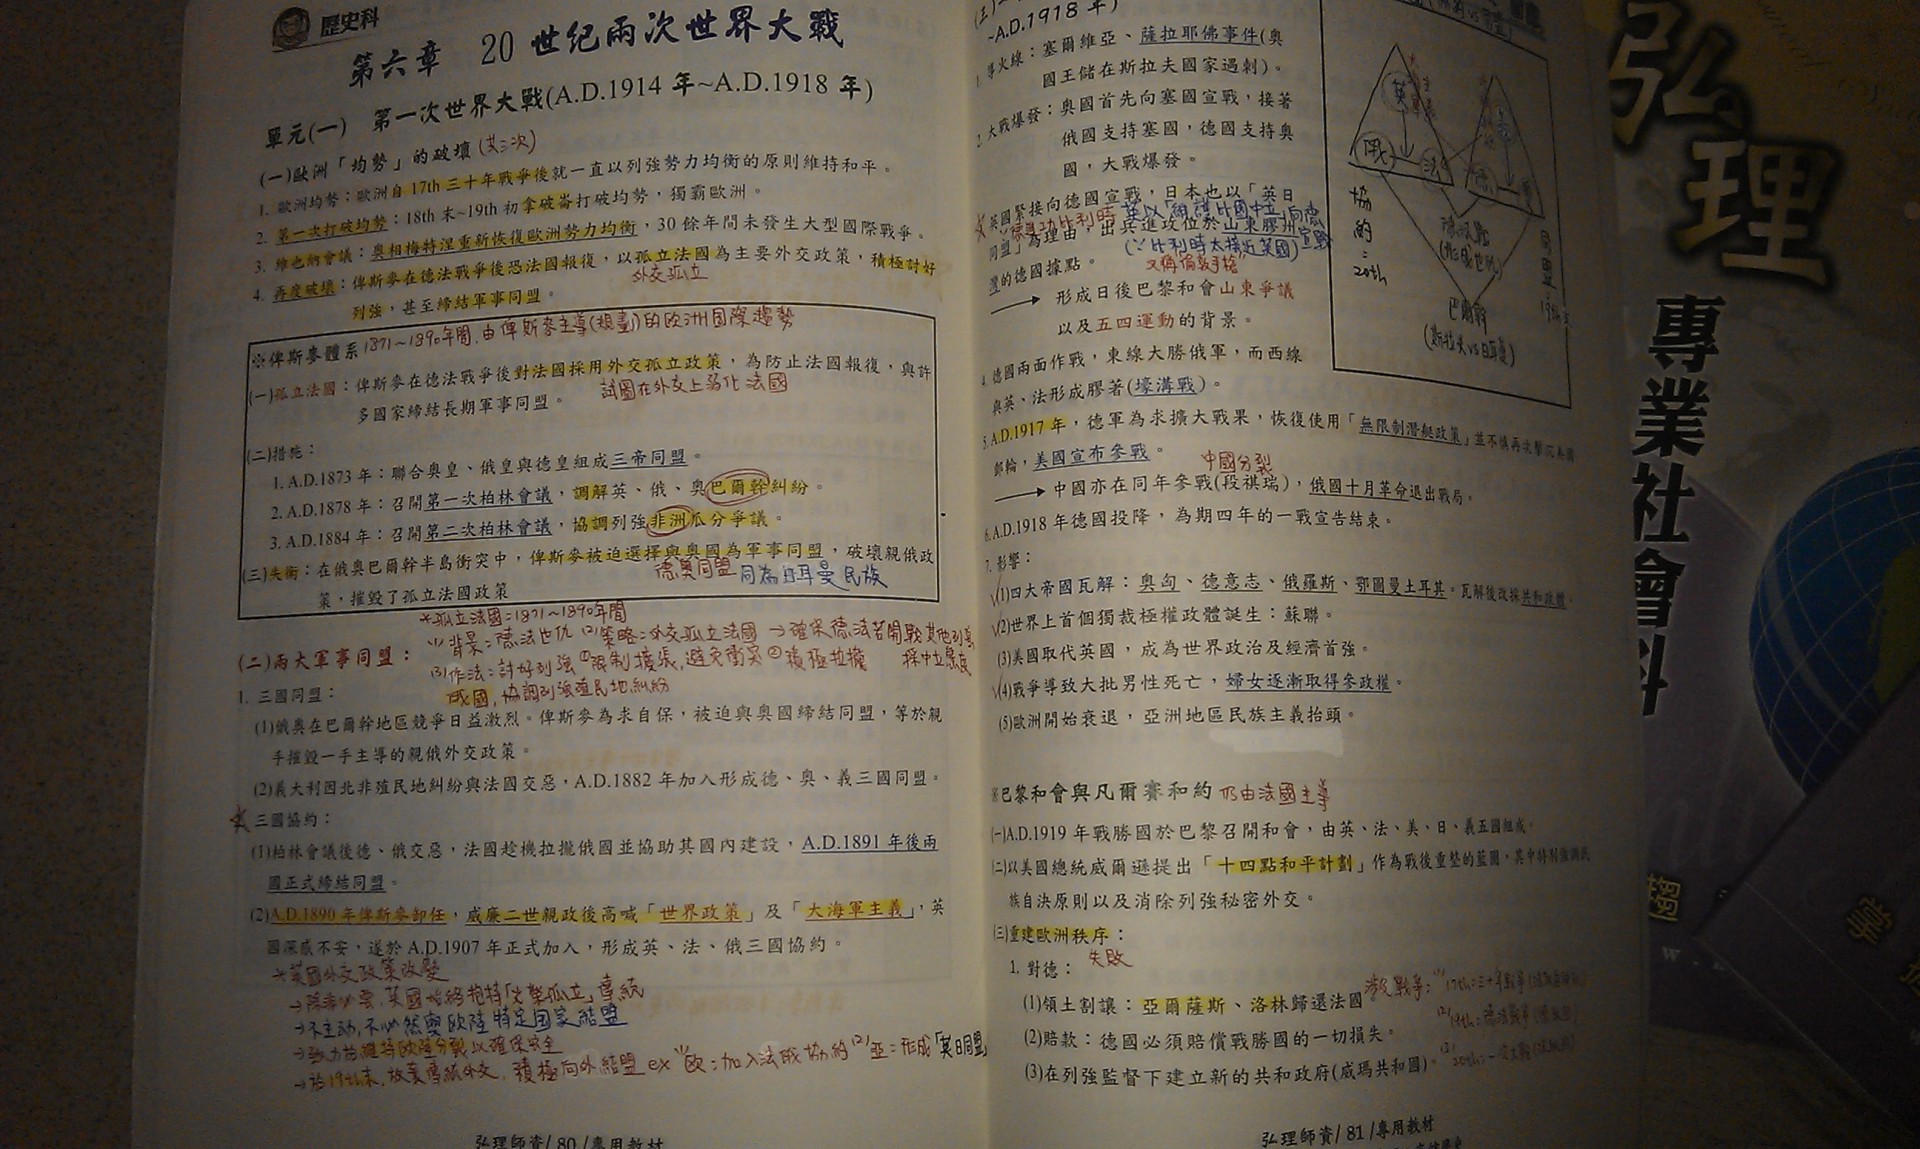 歷史科
第六章 20 世紀兩次世界大戰
單元(一) 第一次世界大戰(A.D.1914 年~A.D.1918 年)
(一)歐洲「均勢」的破壞(共三次)
1. 歐洲均勢：歐洲自 17th 三十年戰爭後就一直以列強勢力均衡的原則維持和平。
2. 第一次打破均勢：18th 末~19th 初拿破崙打破均勢，獨霸歐洲。
3. 維也納會議：奧相梅特涅重新恢復歐洲勢力均衡，30 餘年間未發生大型國際戰爭。
4. 再度破壞：俾斯麥在德法戰爭後恐法國報復，以孤立法國為主要外交政策，積極討好
外交孤立
列強，甚至締結軍事同盟。
※俾斯麥體系 1871~1890年間,由俾斯麥主導(規劃)的歐洲國際趨勢
(一)孤立法國：俾斯麥在德法戰爭後對法國採用外交孤立政策，為防止法國報復，與許
試圖在外交上弱化法國
多國家締結長期軍事同盟。
(二)措施：
1. A.D.1873 年：聯合奧皇、俄皇與德皇組成三帝同盟。
2. A.D.1878 年：召開第一次柏林會議，調解英、俄、奧巴爾幹糾紛。
3. A.D.1884 年：召開第二次柏林會議，協調列強非洲瓜分爭議。
(三)失衡：在俄奧巴爾幹半島衝突中，俾斯麥被迫選擇與奧國為軍事同盟，破壞親俄政
德奧同盟 同為日耳曼民族
策，摧毀了孤立法國政策
*孤立法國=1871~1890年間
(1)背景：德法世仇 (2)策略：外交孤立法國 →確保德法若開戰其他列強
(二)兩大軍事同盟：
(3)作法：討好列強 ①限制擴張,避免衝突 ②積極拉攏 採中立態度
俄國，協調列強殖民地糾紛
1. 三國同盟：
(1)俄奧在巴爾幹地區競爭日益激烈。俾斯麥為求自保，被迫與奧國締結同盟，等於親
手摧毀一手主導的親俄外交政策。
(2)義大利因北非殖民地糾紛與法國交惡，A.D.1882 年加入形成德、奧、義三國同盟。
三國協約：
(1)柏林會議後德、俄交惡，法國趁機拉攏俄國並協助其國內建設，A.D.1891 年後兩
國正式締結同盟。
(2)A.D.1890 年俾斯麥卸任，威廉二世親政後高喊「世界政策」及「大海軍主義」，英
國深感不安，遂於 A.D.1907 年正式加入，形成英、法、俄三國協約。
*英國外交政策改變
→除非必要,英國始終抱持「光榮孤立」傳統
→不主動,不必然與歐陸特定國家結盟
→致力於維持歐陸分裂以確保安全
→於19th末,放棄傳統外交,積極向外結盟 ex (1)歐：加入法俄協約 (2)亞：形成「英日同盟」
弘理師資/ 80 /專用教材
~A.D.1918 年)
導火線：塞爾維亞、薩拉耶佛事件(奧
國王儲在斯拉夫國家遇刺)。
2. 大戰爆發：奧國首先向塞國宣戰，接著
俄國支持塞國，德國支持奧
國，大戰爆發。
英國緊接向德國宣戰，日本也以「英日
同盟」為理由，出兵進攻位於山東膠州
(∵比利時太接近英國)
灣的德國據點。
→ 形成日後巴黎和會山東爭議
以及五四運動的背景。
4. 德國兩面作戰，東線大勝俄軍，而西線
與英、法形成膠著(壕溝戰)。
5. A.D.1917 年，德軍為求擴大戰果，恢復使用「無限制潛艇政策」並不慎再次擊沉美國
郵輪，美國宣布參戰。
中國分裂
→中國亦在同年參戰(段祺瑞)，俄國十月革命退出戰局。
6. A.D.1918 年德國投降，為期四年的一戰宣告結束。
7. 影響：
(1)四大帝國瓦解：奧匈、德意志、俄羅斯、鄂圖曼土耳其。瓦解後改採共和政體。
(2)世界上首個獨裁極權政體誕生：蘇聯。
(3)美國取代英國，成為世界政治及經濟首強。
(4)戰爭導致大批男性死亡，婦女逐漸取得參政權。
(5)歐洲開始衰退，亞洲地區民族主義抬頭。
※巴黎和會與凡爾賽和約 仍由法國主導
(一)A.D.1919 年戰勝國於巴黎召開和會，由英、法、美、日、義五國組成。
(二)以美國總統威爾遜提出「十四點和平計劃」作為戰後重整的藍圖，其中特別強調民
族自決原則以及消除列強秘密外交。
(三)重建歐洲秩序：
1. 對德： 失敗
(1)領土割讓：亞爾薩斯、洛林歸還法國
(2)賠款：德國必須賠償戰勝國的一切損失。
(3)在列強監督下建立新的共和政府(威瑪共和國)。
弘理師資/ 81 /專用教材
英
俄
法
德
奧
協約=20th
巴爾幹
(斯拉夫vs日耳曼)
弘理
專業社會科